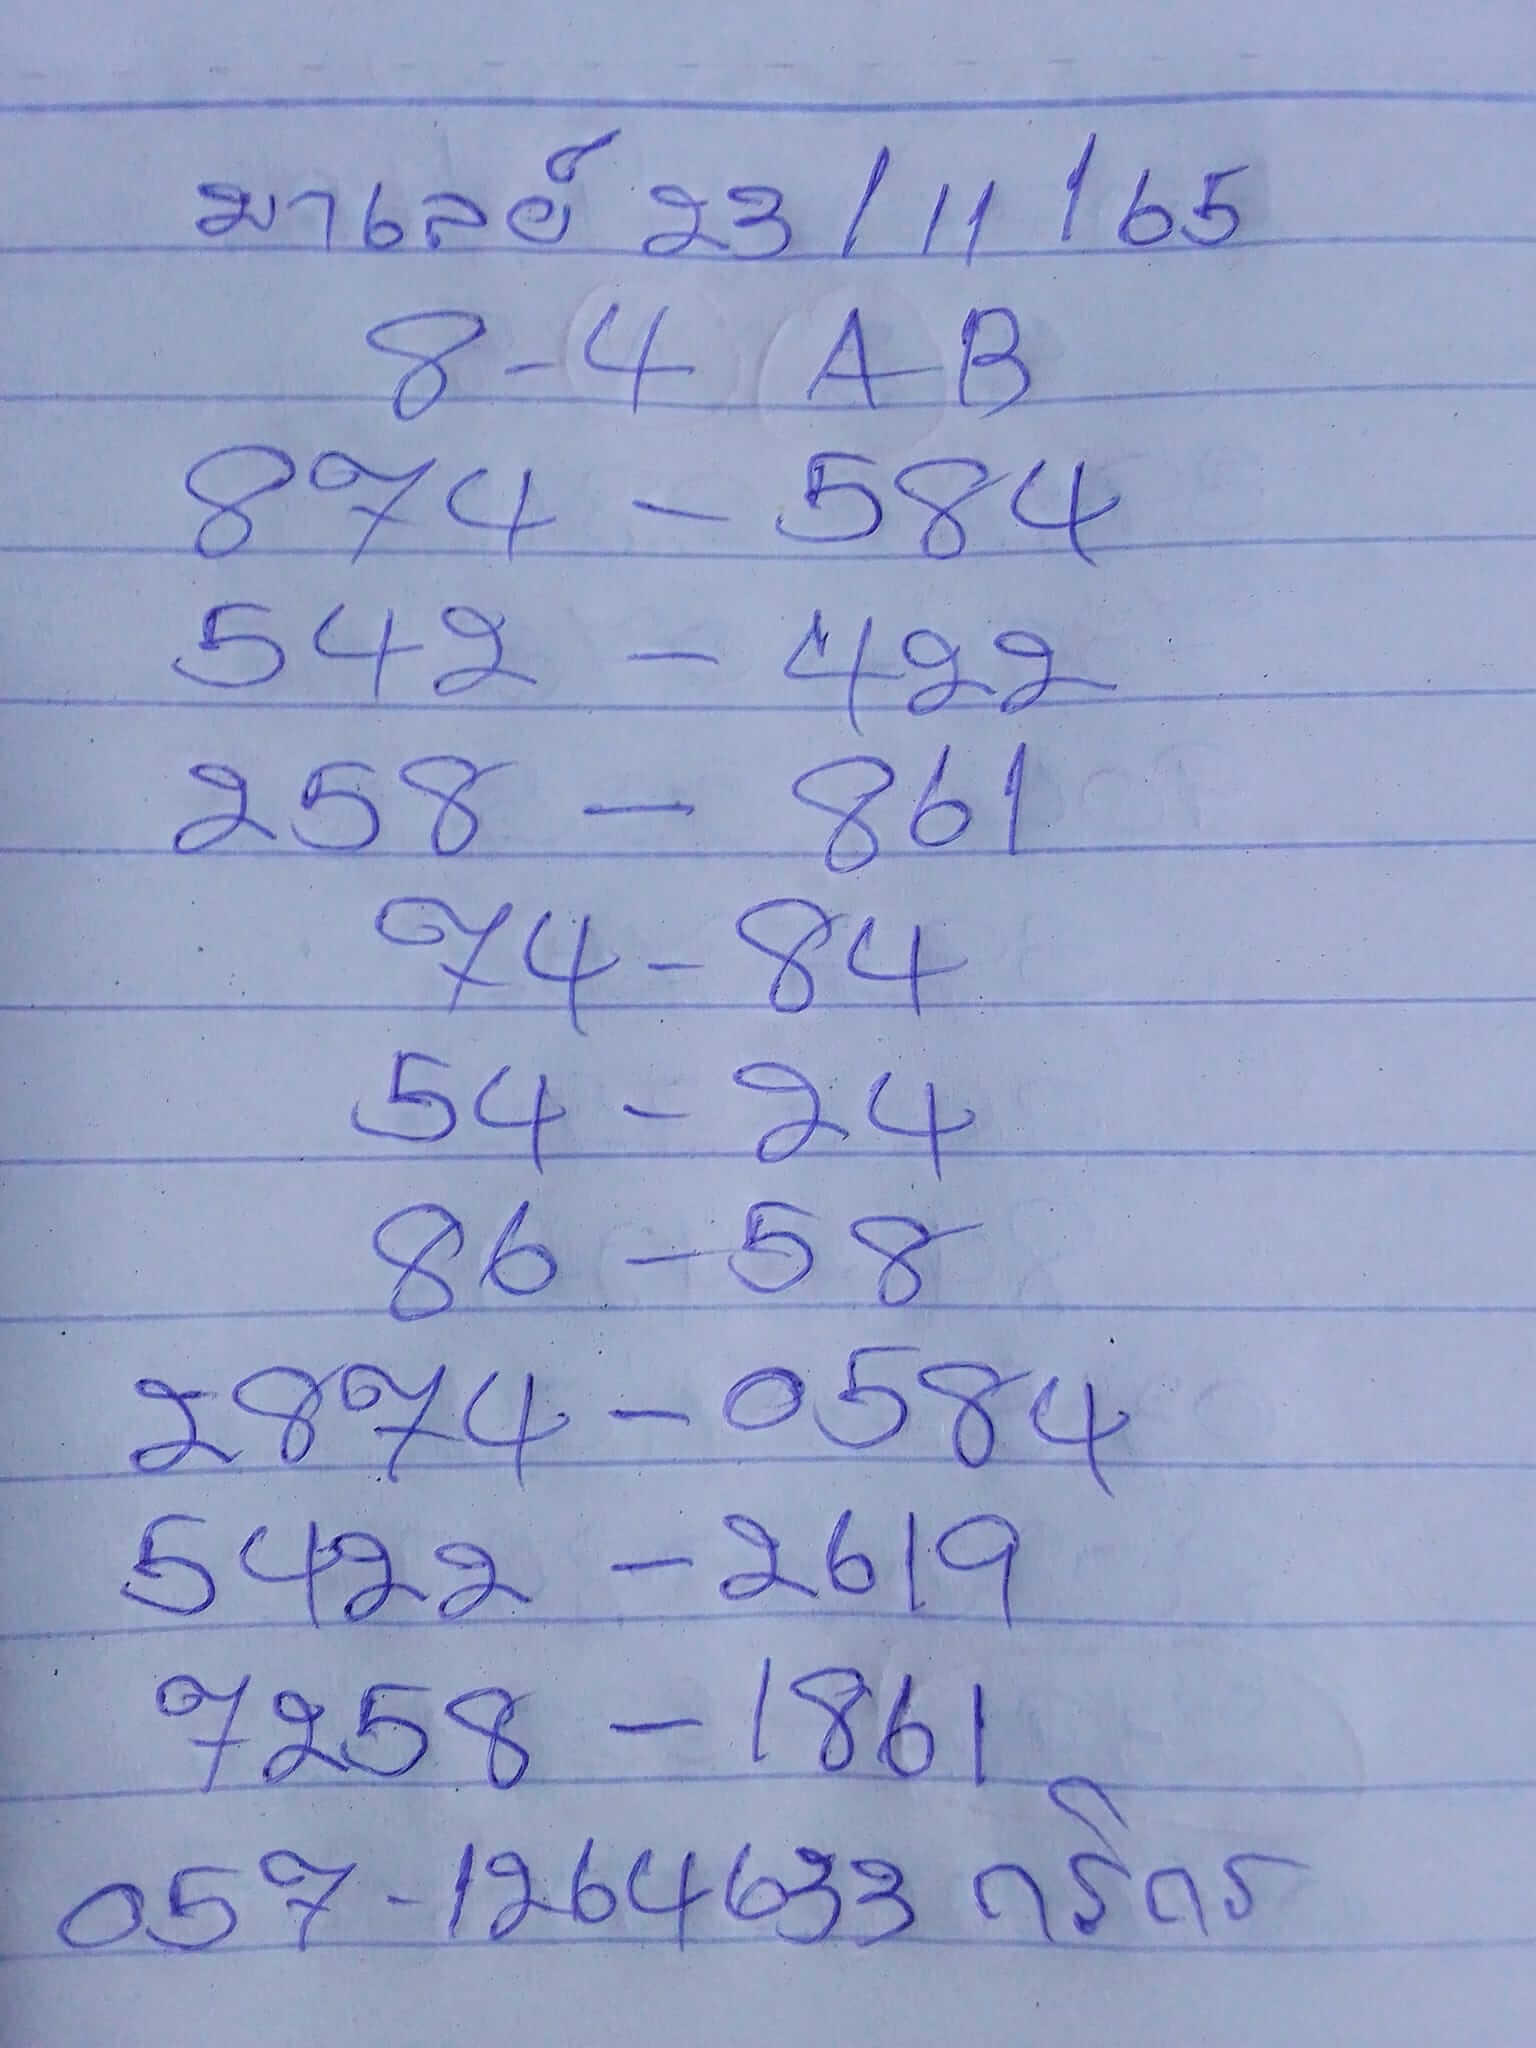 มาเลย์ 23/11/65
8-4 AB
874 - 584
542 - 422
258 - 861
74 - 84
54 - 24
86 - 58
2874 - 0584
5422 - 2619
7258 - 1861
057-1264633 กสิกร